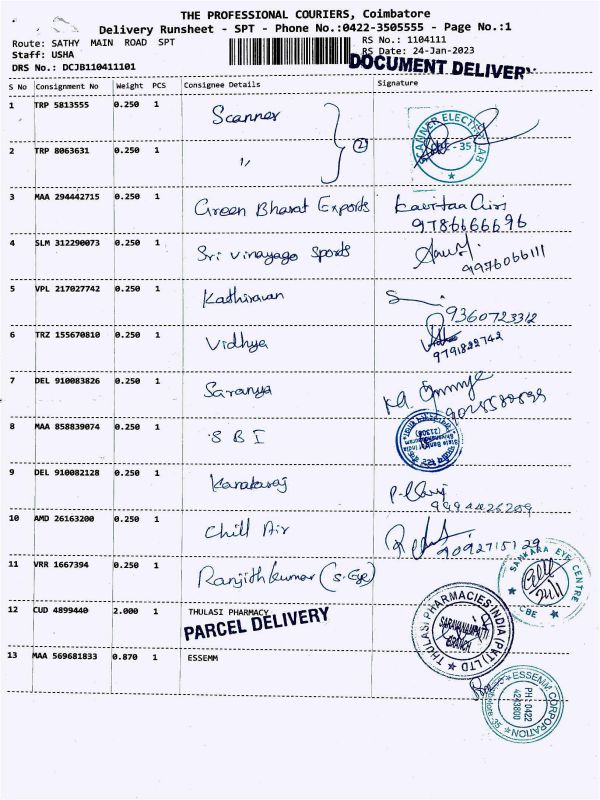 THE PROFESSIONAL COURIERS, Coimbatore
Delivery Runsheet - SPT - Phone No.:0422-3505555 - Page No.:1
Route: SATHY MAIN ROAD SPT RS No.: 1104111
Staff: USHA RS Date: 24-Jan-2023
DRS No.: DCJB110411101 DOCUMENT DELIVERY
S No Consignment No Weight PCS Consignee Details Signature
1 TRP 5813555 0.250 1 Scanner SCANNER ELECTR LAB
2 TRP 8063631 0.250 1 " (2)
3 MAA 294442715 0.250 1 Green Bharat Exports
9786666696
4 SLM 312290073 0.250 1 Sri Vinayaga Sports
9976066111
5 VPL 217027742 0.250 1 Kathiravan
9360723312
6 TRZ 155670810 0.250 1 Vidhya
9791822742
7 DEL 910083826 0.250 1 Saranya
8 MAA 858839074 0.250 1 S B I
9 DEL 910082128 0.250 1 Kanakaraj
9994426209
10 AMD 26163200 0.250 1 Chill Air
9092715129
11 VRR 1667394 0.250 1 Ranjithkumar (S. Eye) SANKARA EYE CENTRE CBE
12 CUD 4899440 2.000 1 THULASI PHARMACY THULASI PHARMACIES INDIA (PVT) LTD SARAVANAMPATTI BRANCH
PARCEL DELIVERY
13 MAA 569681833 0.870 1 ESSEMM ESSEMM CORPORATION PH : 0422 4243800